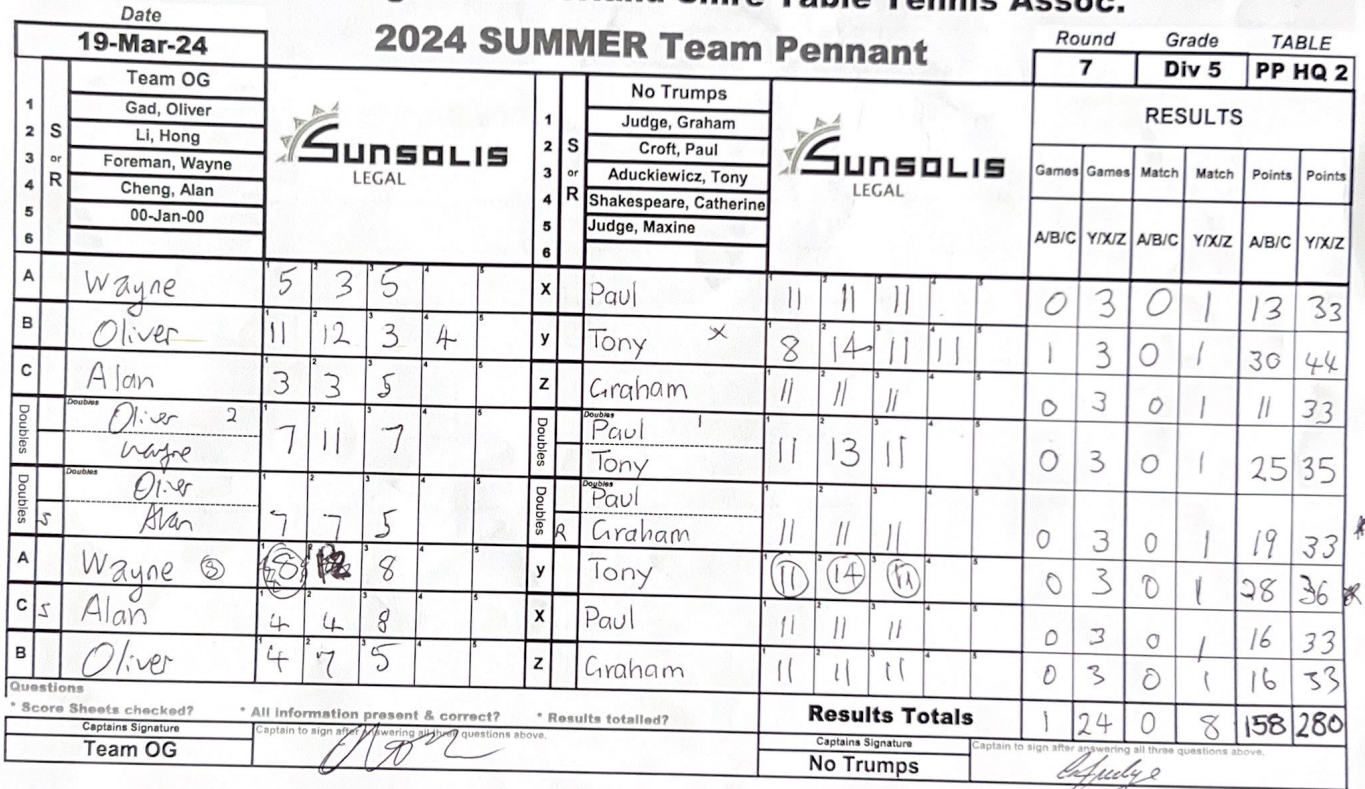 Table Tennis Assoc.
2024 SUMMER Team Pennant
Date
19-Mar-24
Round Grade TABLE
7 Div 5 PP HQ 2
1 2 3 4 5 6
S or R
Team OG
Gad, Oliver
Li, Hong
Foreman, Wayne
Cheng, Alan
00-Jan-00
SUNSOLIS
LEGAL
1 2 3 4 5 6
S or R
No Trumps
Judge, Graham
Croft, Paul
Aduckiewicz, Tony
Shakespeare, Catherine
Judge, Maxine
SUNSOLIS
LEGAL
RESULTS
Games Games Match Match Points Points
A/B/C Y/X/Z A/B/C Y/X/Z A/B/C Y/X/Z
A Wayne 5 3 5 X Paul 11 11 11 0 3 0 1 13 33
B Oliver 11 12 3 4 y Tony x 8 14 11 11 1 3 0 1 30 44
C Alan 3 3 5 Z Graham 11 11 11 0 3 0 1 11 33
Doubles Doubles Oliver 2 7 11 7 Doubles Doubles Paul 1 11 13 11 0 3 0 1 25 35
Wayne Tony
Doubles Doubles Oliver Doubles Doubles Paul
S Alan 7 7 5 R Graham 11 11 11 0 3 0 1 19 33
A Wayne 3 8 8 y Tony 11 14 11 0 3 0 1 28 36
C S Alan 4 4 8 X Paul 11 11 11 0 3 0 1 16 33
B Oliver 4 7 5 Z Graham 11 11 11 0 3 0 1 16 33
Questions
* Score Sheets checked? * All information present & correct? * Results totalled?
Results Totals 1 24 0 8 158 280
Captains Signature
Team OG
Captain to sign after answering all three questions above.
Captains Signature
No Trumps
Captain to sign after answering all three questions above.